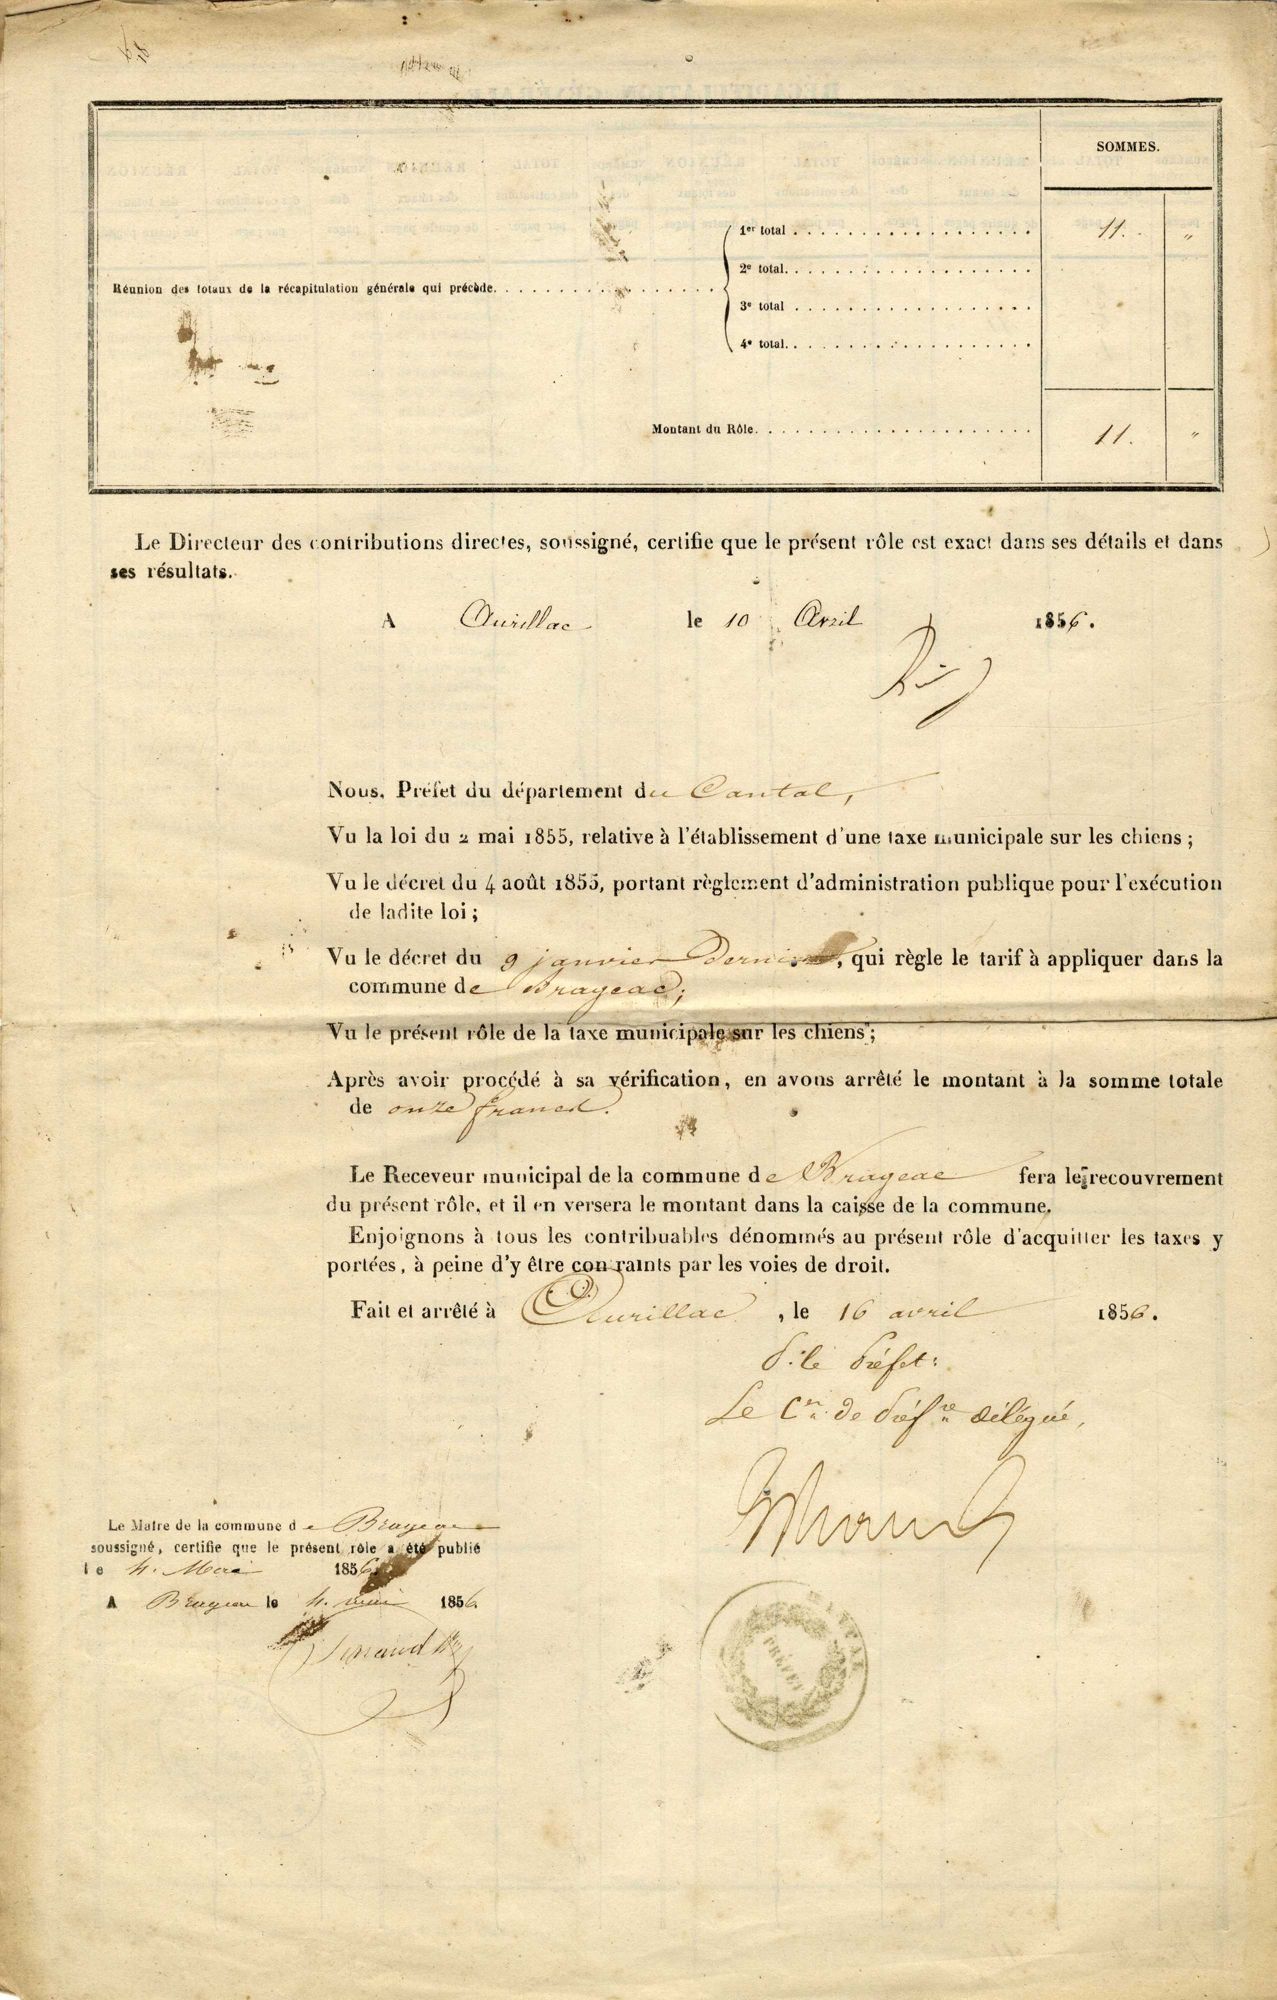 SOMMES.
1er total . . . . . . . . . . . . . . . . . . 11. "
2e total. . . . . . . . . . . . . . . . . . .
Réunion des totaux de la récapitulation générale qui précède. . . . . . . . . . . . . . . . . .
3e total . . . . . . . . . . . . . . . . . .
4e total. . . . . . . . . . . . . . . . . . .
Montant du Rôle. . . . . . . . . . . . . . . . . . . . . 11. "
Le Directeur des contributions directes, soussigné, certifie que le présent rôle est exact dans ses détails et dans
ses résultats.
A Aurillac le 10 Avril 1856.
Nous, Préfet du département du Cantal,
Vu la loi du 2 mai 1855, relative à l'établissement d'une taxe municipale sur les chiens ;
Vu le décret du 4 août 1855, portant règlement d'administration publique pour l'exécution
de ladite loi ;
Vu le décret du 9 janvier Dernier, qui règle le tarif à appliquer dans la
commune de Brageac ;
Vu le présent rôle de la taxe municipale sur les chiens ;
Après avoir procédé à sa vérification, en avons arrêté le montant à la somme totale
de onze francs.
Le Receveur municipal de la commune de Brageac fera le recouvrement
du présent rôle, et il en versera le montant dans la caisse de la commune.
Enjoignons à tous les contribuables dénommés au présent rôle d'acquitter les taxes y
portées, à peine d'y être contraints par les voies de droit.
Fait et arrêté à Aurillac, le 16 avril 1856.
P. le Préfet :
Le Cer de Préfre délégué,
Le Maire de la commune de Brageac
soussigné, certifie que le présent rôle a été publié
le 4. Mai 1856.
A Brageac le 4. mai 1856
CANTAL
PRÉFET